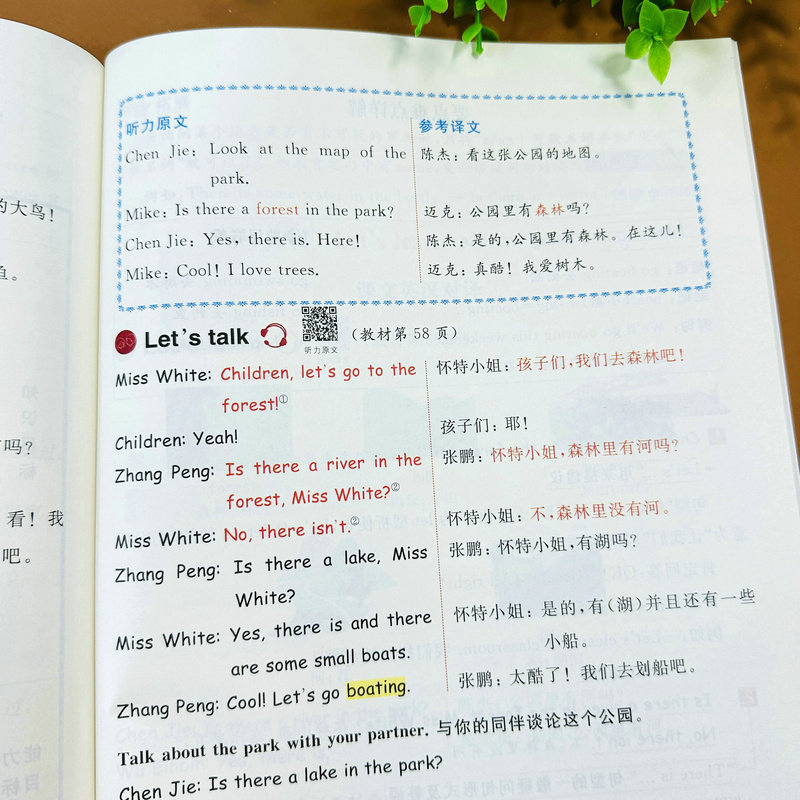 听力原文
Chen Jie: Look at the map of the
park.
Mike: Is there a forest in the park?
Chen Jie: Yes, there is. Here!
Mike: Cool! I love trees.
参考译文
陈杰：看这张公园的地图。
迈克：公园里有森林吗？
陈杰：是的，公园里有森林。在这儿！
迈克：真酷！我爱树木。
Let's talk
听力原文
（教材第 58 页）
Miss White: Children, let's go to the
forest!①
Children: Yeah!
Zhang Peng: Is there a river in the
forest, Miss White?②
Miss White: No, there isn't.②
Zhang Peng: Is there a lake, Miss
White?
Miss White: Yes, there is and there
are some small boats.
Zhang Peng: Cool! Let's go boating.
怀特小姐：孩子们，我们去森林吧！
孩子们：耶！
张鹏：怀特小姐，森林里有河吗？
怀特小姐：不，森林里没有河。
张鹏：怀特小姐，有湖吗？
怀特小姐：是的，有（湖）并且还有一些
小船。
张鹏：太酷了！我们去划船吧。
Talk about the park with your partner. 与你的同伴谈论这个公园。
Chen Jie: Is there a lake in the park?
的大鸟！
鱼。
吗？
看！我
吧。